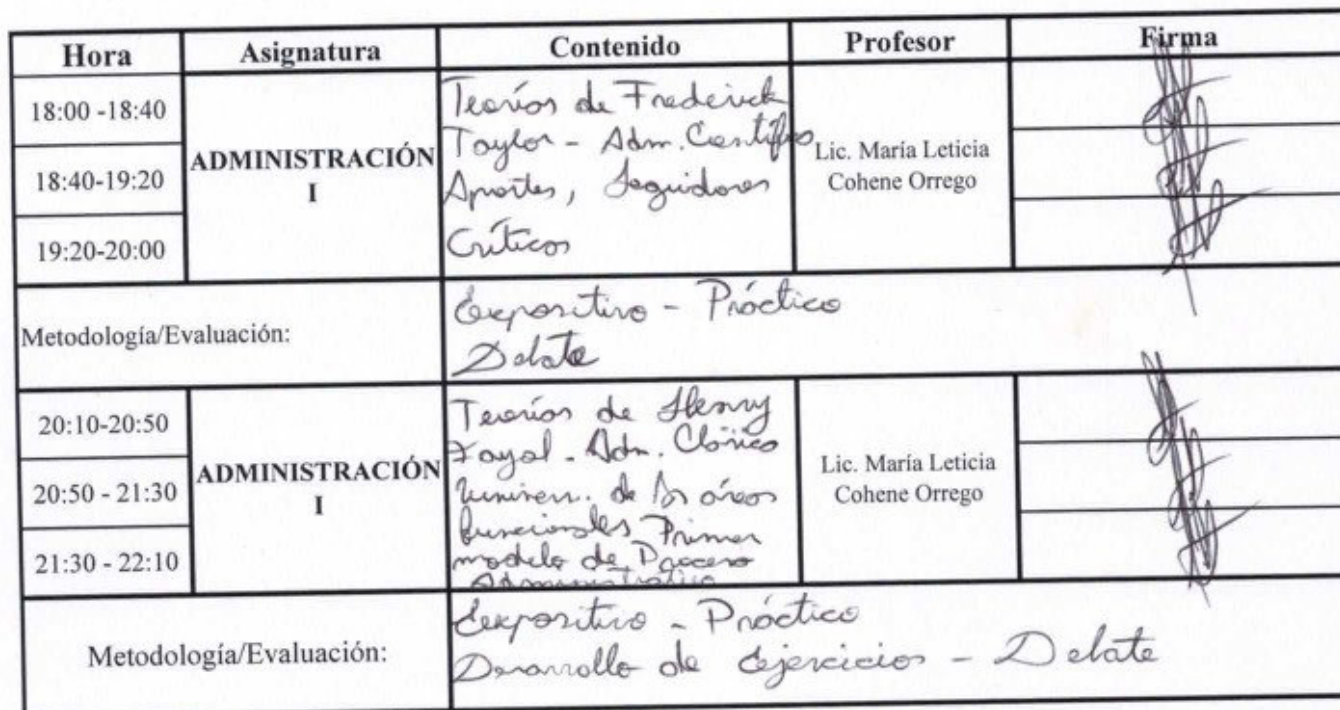 Hora Asignatura Contenido Profesor Firma
18:00 -18:40
18:40-19:20
19:20-20:00
ADMINISTRACIÓN
I
Teorías de Frederick
Taylor - Adm. Científica
Aportes, Seguidores
Críticos
Lic. María Leticia
Cohene Orrego
Metodología/Evaluación:
Expositivo - Práctico
Debate
20:10-20:50
20:50 - 21:30
21:30 - 22:10
ADMINISTRACIÓN
I
Teorías de Henry
Fayol - Adm. Clásica
de las áreas
funcionales Primer
modelo de Proceso
Administrativo
Lic. María Leticia
Cohene Orrego
Metodología/Evaluación:
Expositivo - Práctico
Desarrollo de Ejercicios - Debate